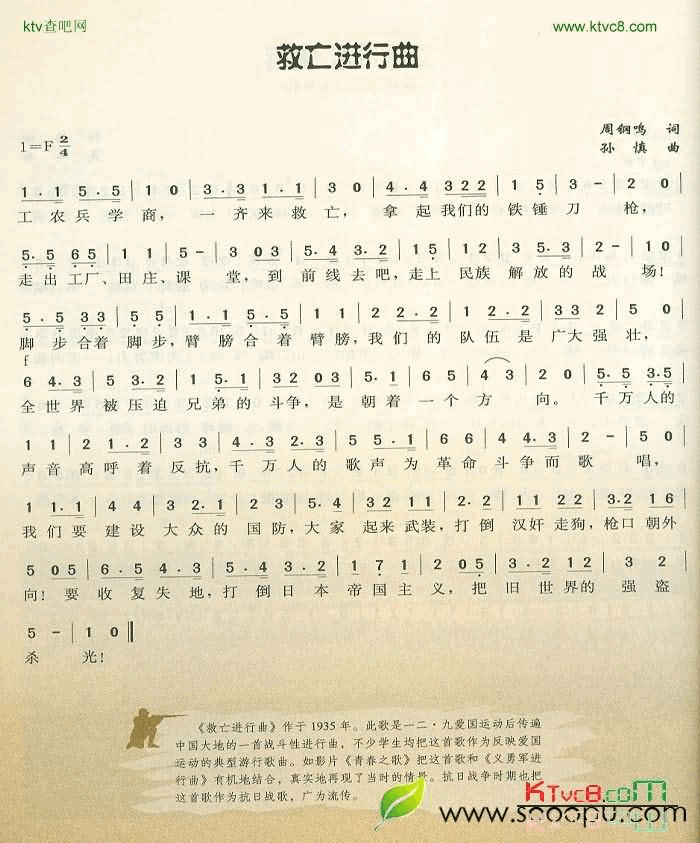 ktv查吧网
www.ktvc8.com
救亡进行曲
1=F 2/4
周钢鸣 词
孙慎 曲
1·1 5·5 | 1 0 | 3·3 1·1 | 3 0 | 4·4 3 2 2 | 1 5 | 3 - | 2 0 |
工农兵学商, 一齐来救亡, 拿起我们的铁锤刀枪,
5·5 6 5 | 1 1 | 5 - | 3 0 3 | 5·4 3·2 | 1 5 | 1 2 | 3 5·3 | 2 - | 1 0 |
走出工厂、田庄、课堂, 到前线去吧, 走上民族解放的战场!
5·5 3 3 | 5·5 | 1·1 5·5 | 1 1 | 2·2 2·2 | 1 2·2 | 3 3 2 | 5 0 |
脚步合着脚步, 臂膀合着臂膀, 我们的队伍是广大强壮,
f
6 4·3 | 5 3·2 | 1 5·1 | 3 2 0 3 | 5·1 | 6 5 | 4 3 | 2 0 | 5·5 3·5 |
全世界被压迫兄弟的斗争, 是朝着一个方向。千万人的
1 1 | 2 1·2 | 3 3 | 4·3 2·3 | 5 5·1 | 6 6 | 4 4·3 | 2 - | 5 0 |
声音高呼着反抗, 千万人的歌声为革命斗争而歌唱,
1 1 1 | 4 4 | 3 2·1 | 2 3 | 5 4 | 3 2 | 1 2 | 3 5 | 1 2 | 3·2 1 6 |
我们要建设大众的国防, 大家起来武装, 打倒汉奸走狗, 枪口朝外
5 0 5 | 6·5 4·3 | 5 4·3 | 2·1 | 7 1 | 2 0 5 | 3·2 1 2 | 3 2 |
向! 要收复失地, 打倒日本帝国主义, 把旧世界的强盗
5 - | 1 0 ‖
杀光!
《救亡进行曲》作于1935年。此歌是一二·九爱国运动后传遍
中国大地的一首战斗性进行曲，不少学生均把这首歌作为反映爱国
运动的典型游行歌曲。如影片《青春之歌》把这首歌和《义勇军进
行曲》有机地结合，真实地再现了当时的情景。抗日战争时期也把
这首歌作为抗日战歌，广为流传。
KTvc8.com
www.sooopu.com